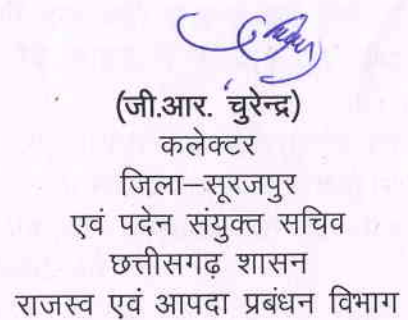 (जी.आर. चुरेन्द्र)
कलेक्टर
जिला–सूरजपुर
एवं पदेन संयुक्त सचिव
छत्तीसगढ़ शासन
राजस्व एवं आपदा प्रबंधन विभाग